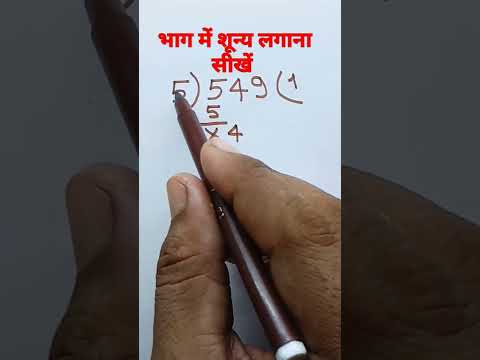 भाग में शून्य लगाना
सीखें
5) 549 (1
5
x 4